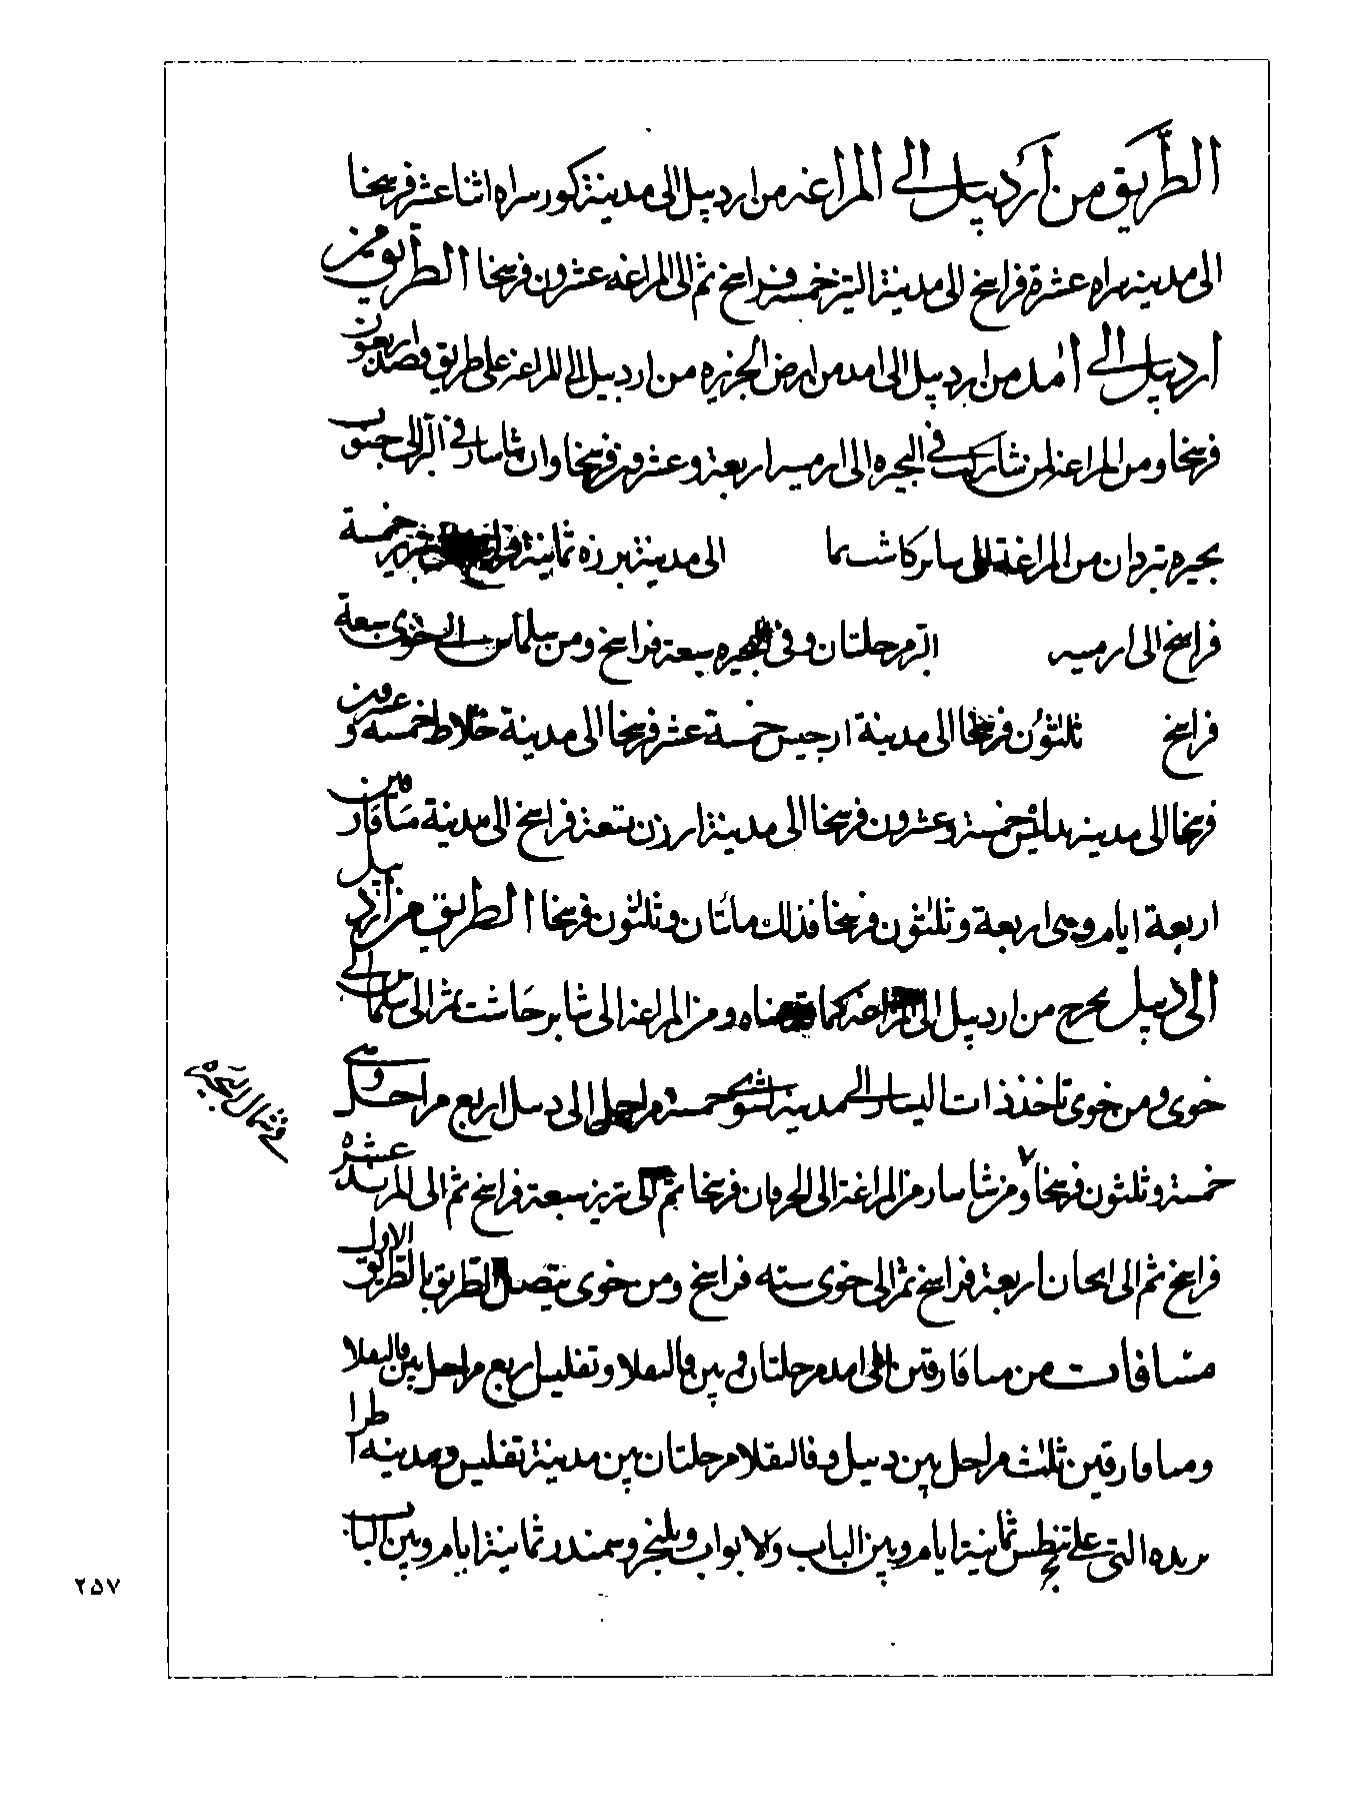 الطريق من اردبيل الى المراغه من اردبيل الى مدينة كورسراه اثنا عشر فرسخا
الى مدينه سراه عشرة فراسخ الى مدينة النيز خمسه فراسخ ثم الى المراغه عشرون فرسخا الطريق من
اردبيل الى آمد من اردبيل الى امد من ارض الجزيره من اردبيل الى المراغه على طريق قصد اربعون
فرسخا ومن المراغه لمن شا ركب في البحيره الى ارميه اربعة وعشرون فرسخا وان شا سار في البر الى جنوب
بحيره بزدان من المراغة الى سابركاشت بما الى مدينة برزه ثمانية فراسخ خمسة
فراسخ الى ارميه البر مرحلتان وفى البحيره سبعة فراسخ ومن سلماس الى خوى سبعة
فراسخ ثلثون فرسخا الى مدينة ارجيس خمسة عشر فرسخا الى مدينة خلاط خمسه وعشرون
فرسخا الى مدينه بدليس خمسة وعشرون فرسخا الى مدينة ارزن ستعة فراسخ الى مدينة ميافارقين
اربعة ايام وهى اربعة وثلثون فرسخا فذلك مائتان وثلثون فرسخا الطريق من اردبيل
الى دبيل يخرج من اردبيل الى المراغه كما وصفناه ومن المراغه الى شابرخاشت ثم الى سلماس الى
خوى ومن خوى تاخذ ذات اليسار الى مدينة نشوى خمسة مراحل الى دبيل اربع مراحل وهى
في شمال البحيره
خمسة وثلثون فرسخا ومن شا سار من المراغة الى الخرقان فرسخا ثم الى تبريز سبعة فراسخ ثم الى المرند عشره
فراسخ ثم الى الخان اربعة فراسخ ثم الى خوى سته فراسخ ومن خوى يتصل الطريق بالطريق الاول
مسافات من ميافارقين الى امد مرحلتان وبين قاليقلا وتفليس اربع مراحل بين قاليقلا
وميافارقين ثلث مراحل بين دبيل وقاليقلا مرحلتان بين مدينة تفليس ومدينه اطرا
بزنده التى على بنطس ثمانية ايام وبين الباب والابواب وبلنجر وسمندر ثمانية ايام وبين الباب
٢٥٧